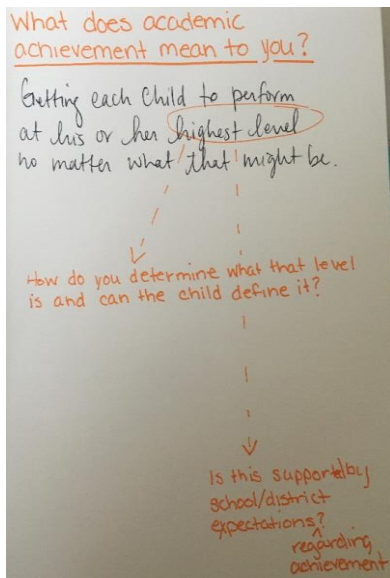 What does academic
achievement mean to you?
Getting each child to perform
at his or her highest level
no matter what that might be.
How do you determine what that level
is and can the child define it?
Is this supported by
school/district
expectations?
^
regarding
achievement